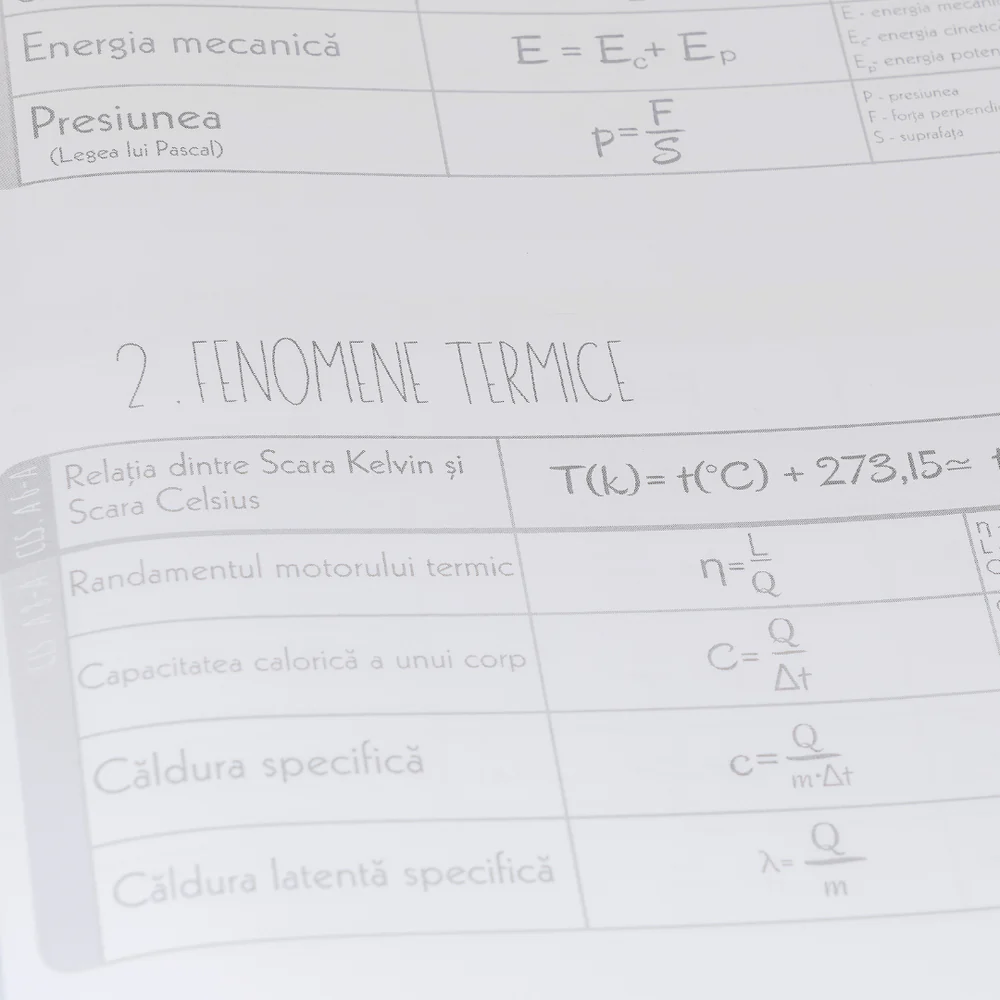 Energia mecanică
E = E_c + E_p
E - energia
E_c - energia
E_p - energia
Presiunea
(Legea lui Pascal)
p = F/S
P - presiunea
F - forța
S - suprafața
2. FENOMENE TERMICE
Relația dintre Scara Kelvin și
Scara Celsius
T(k) = t(°C) + 273,15 ≃ t
Randamentul motorului termic
η = L/Q
η
L
Q
Capacitatea calorică a unui corp
C = Q/Δt
Căldura specifică
c = Q/m·Δt
Căldura latentă specifică
λ = Q/m
CLS. A 6-A